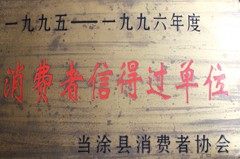 一九九五——一九九六年度
消费者信得过单位
当涂县消费者协会